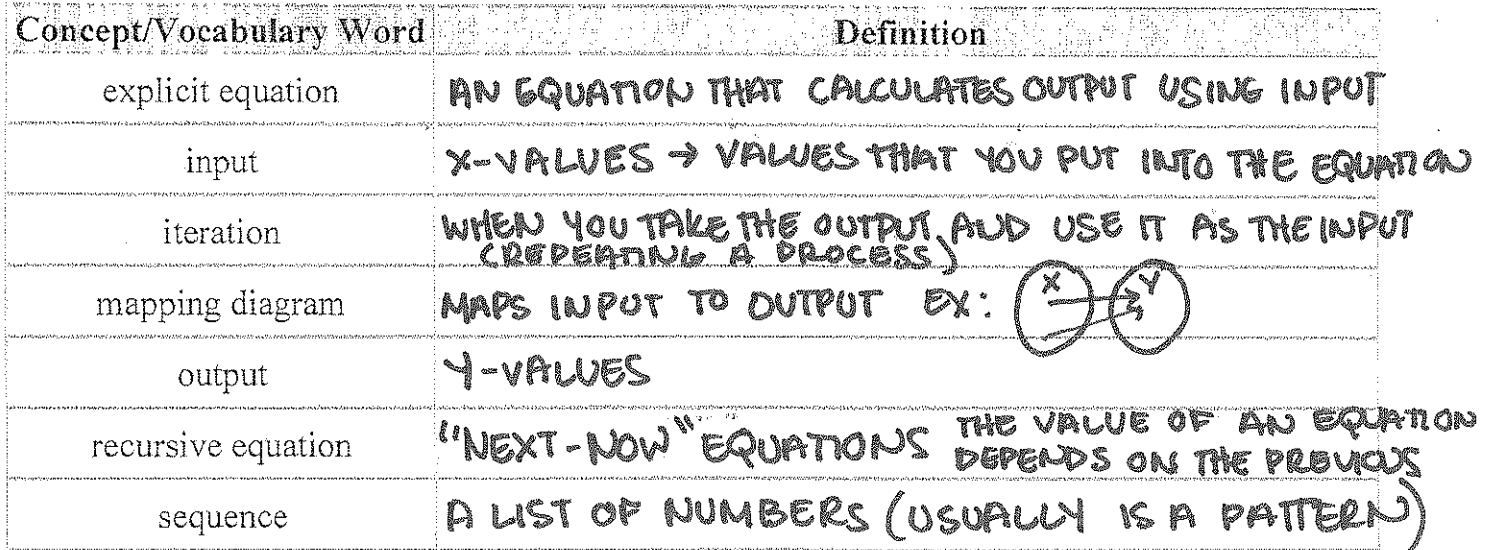 Concept/Vocabulary Word Definition
explicit equation AN EQUATION THAT CALCULATES OUTPUT USING INPUT
input X-VALUES → VALUES THAT YOU PUT INTO THE EQUATION
iteration WHEN YOU TAKE THE OUTPUT AND USE IT AS THE INPUT
(REPEATING A PROCESS)
mapping diagram MAPS INPUT TO OUTPUT EX: X Y
output Y-VALUES
recursive equation "NEXT-NOW" EQUATIONS THE VALUE OF AN EQUATION
DEPENDS ON THE PREVIOUS
sequence A LIST OF NUMBERS (USUALLY IS A PATTERN)